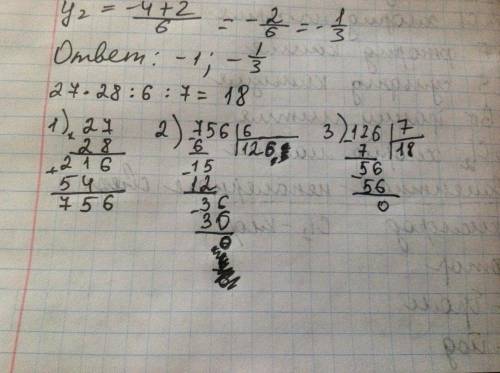 y₂ = -4+2/6 = -2/6 = -1/3
Ответ: -1; -1/3
27·28:6:7= 18
1) × 27
28
+ 216
54
756
2) 756 | 6
6 | 126
-15
12
-36
36
0
3) -126 | 7
7 | 18
-56
56
0